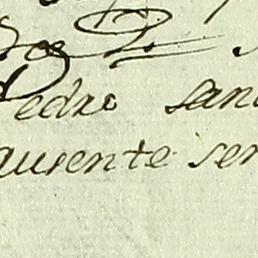 Pedro San
ausente ser